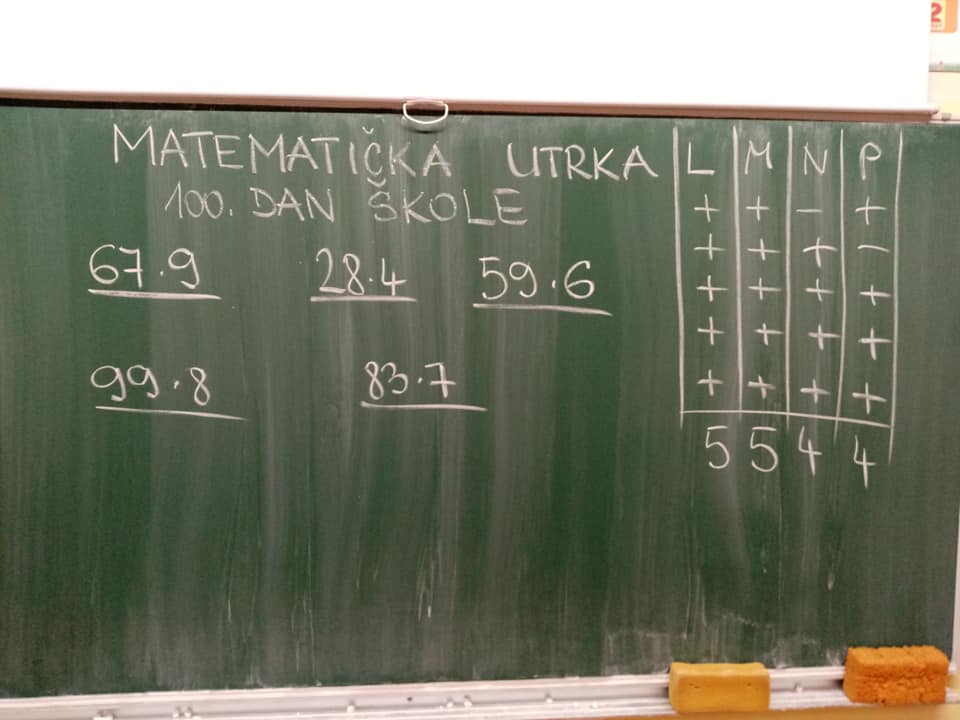 MATEMATIČKA UTRKA
100. DAN ŠKOLE
67.9 28.4 59.6
99.8 83.7
L M N P
+ + - +
+ + + -
+ + + +
+ + + +
+ + + +
5 5 4 4
2